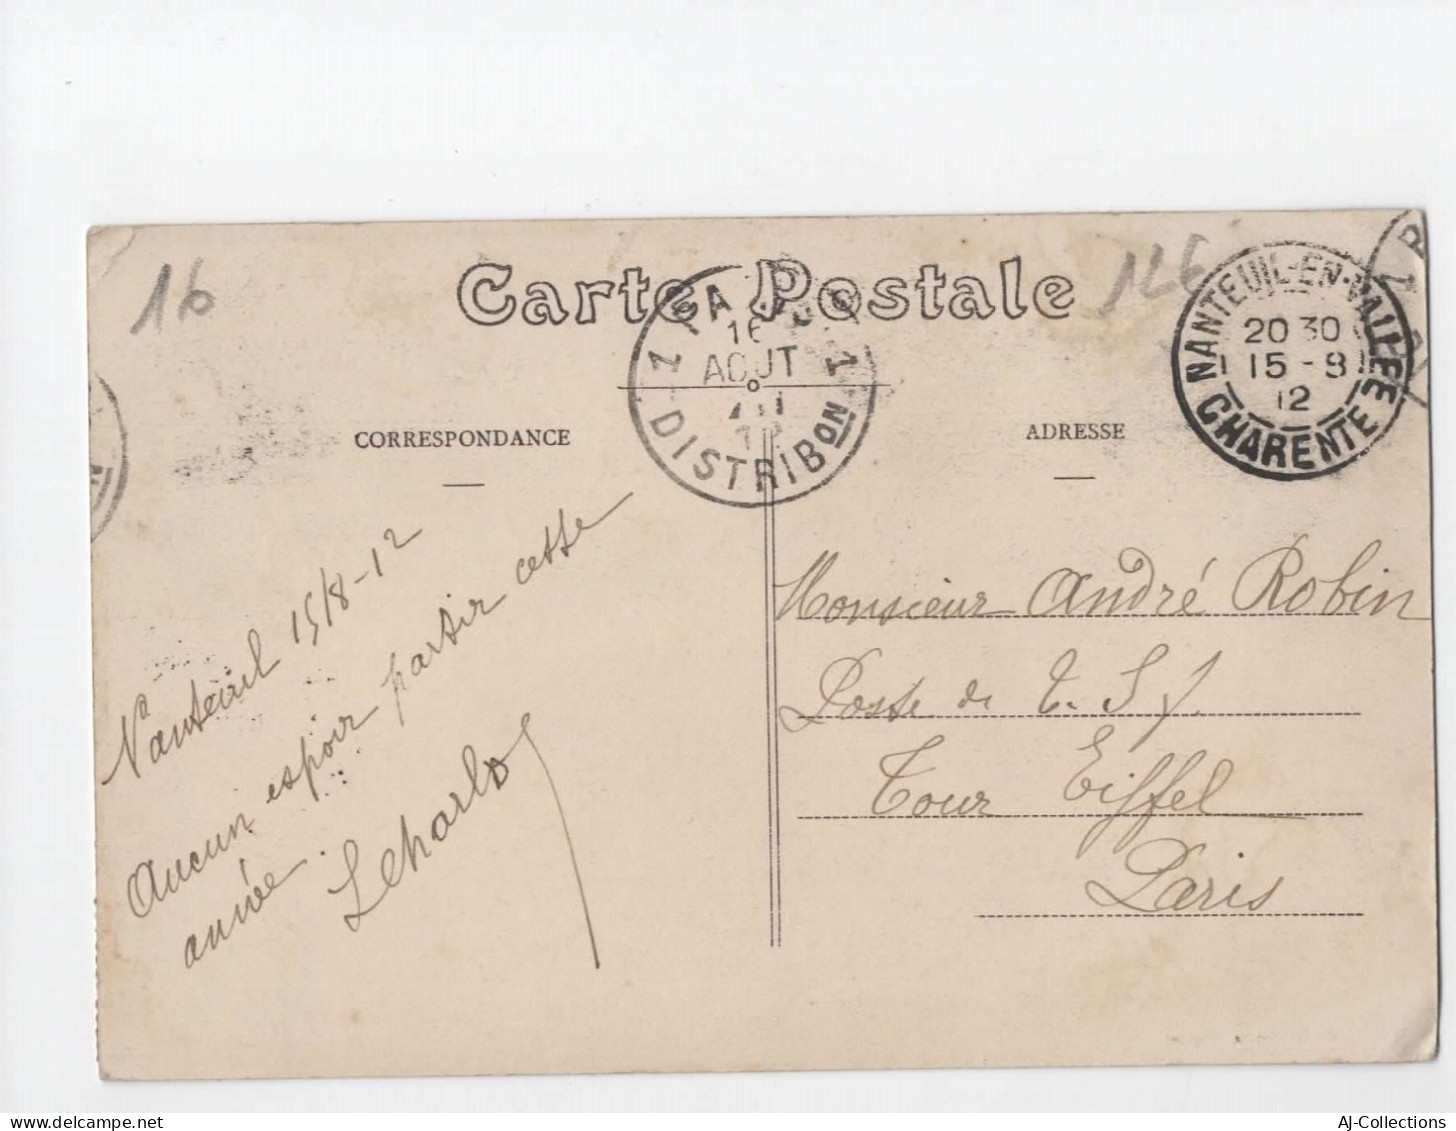 16
Carte Postale
126
NANTEUIL-EN-VALLEE
20 30
15 - 8
12
CHARENTE
1 PARIS 1
16
AOUT
12
DISTRIBON
CORRESPONDANCE
ADRESSE
Nanteuil 15/8-12
Aucun espoir partir cette
année.
Monsieur André Robin
Poste de T. S f.
Tour Eiffel
Paris
AJ-Collections